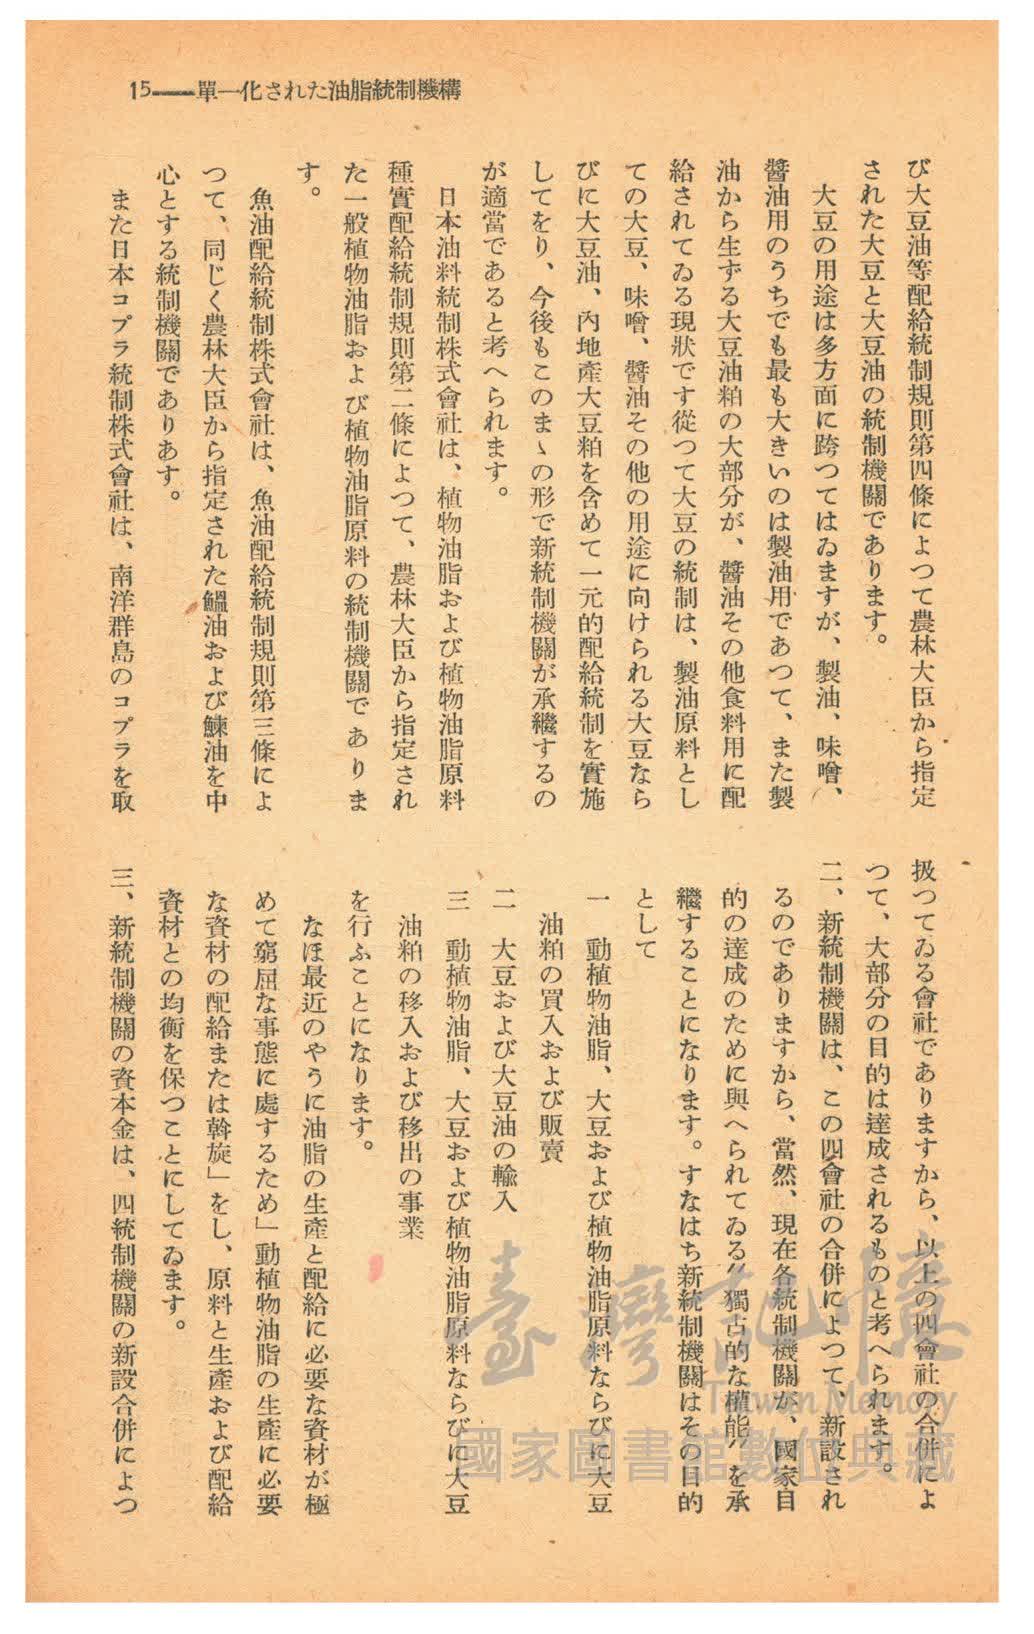 15――單一化された油脂統制機構
び大豆油等配給統制規則第四條によつて農林大臣から指定
された大豆と大豆油の統制機關であります。
大豆の用途は多方面に跨つてはゐますが、製油、味噌、
醬油用のうちでも最も大きいのは製油用であつて、また製
油から生ずる大豆油粕の大部分が、醬油その他食料用に配
給されてゐる現狀です從つて大豆の統制は、製油原料とし
ての大豆、味噌、醬油その他の用途に向けられる大豆なら
びに大豆油、內地產大豆粕を含めて一元的配給統制を實施
してをり、今後もこのまゝの形で新統制機關が承繼するの
が適當であると考へられます。
日本油料統制株式會社は、植物油脂および植物油脂原料
種實配給統制規則第二條によつて、農林大臣から指定され
た一般植物油脂および植物油脂原料の統制機關でありま
す。
魚油配給統制株式會社は、魚油配給統制規則第三條によ
つて、同じく農林大臣から指定された鰮油および鰊油を中
心とする統制機關でありあす。
また日本コプラ統制株式會社は、南洋群島のコプラを取
扱つてゐる會社でありますから、以上の四會社の合併によ
つて、大部分の目的は達成されるものと考へられます。
二、新統制機關は、この四會社の合併によつて、新設され
るのでありますから、當然、現在各統制機關が、國家目
的の達成のために與へられてゐる〃獨占的な權能〃を承
繼することになります。すなはち新統制機關はその目的
として
一　動植物油脂、大豆および植物油脂原料ならびに大豆
油粕の買入および販賣
二　大豆および大豆油の輸入
三　動植物油脂、大豆および植物油脂原料ならびに大豆
油粕の移入および移出の事業
を行ふことになります。
なほ最近のやうに油脂の生產と配給に必要な資材が極
めて窮屈な事態に處するため」動植物油脂の生產に必要
な資材の配給または斡旋」をし、原料と生產および配給
資材との均衡を保つことにしてゐます。
三、新統制機關の資本金は、四統制機關の新設合併によつ
臺灣記憶
Taiwan Memory
國家圖書館數位典藏